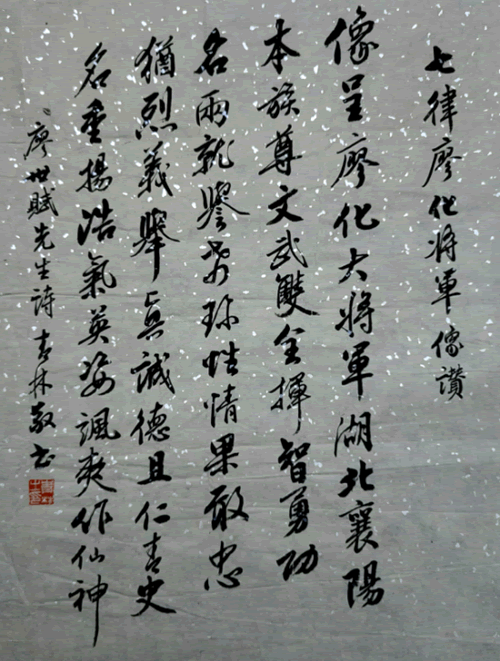 七律廖化将軍像讚
像呈廖化大将軍湖北襄陽
本族尊文武雙全揮智勇功
名兩就譽珍性情果敢忠
猶烈義舉真誠德且仁青史
名垂揚浩氣英姿颯爽作仙神
廖世賦先生詩 吉林敬书